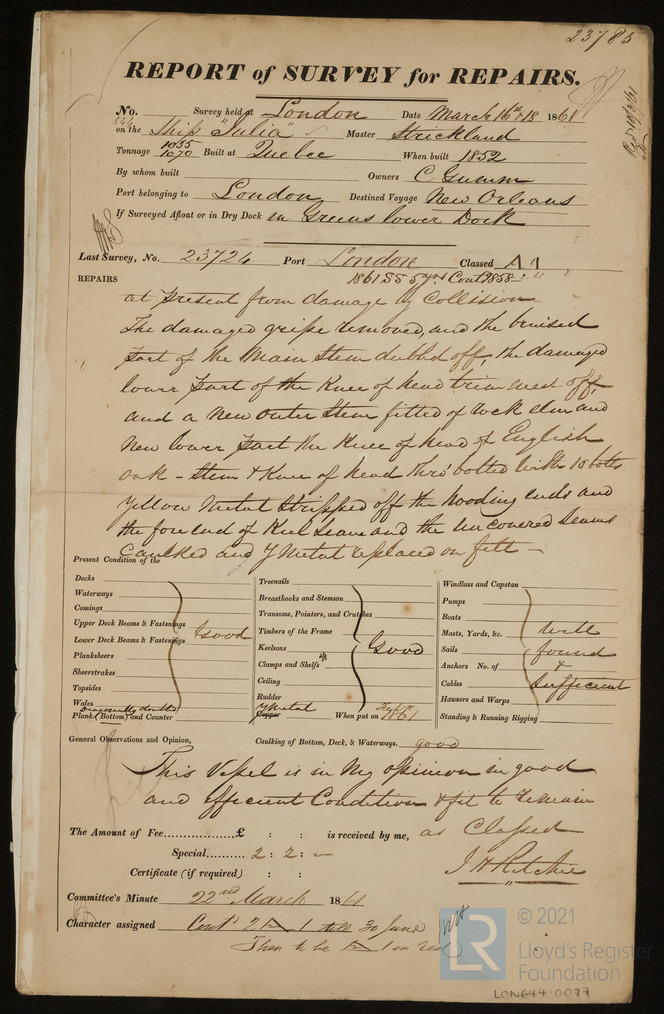 23785
REPORT of SURVEY for REPAIRS.
No. 544 Survey held at London Date March 16th & 18 1861
on the Ship "Julia" Master Strickland
Tonnage 1055 1070 Built at Quebec When built 1852
By whom built Owners C Gumm
Port belonging to London Destined Voyage New Orleans
If Surveyed Afloat or in Dry Dock in Greens lower Dock
Last Survey, No. 23724 Port London Classed A 1
1861 SS 5 yrs Contd 1858
REPAIRS
at present from damage by Collision
The damaged gripe removed, and the bruised
part of the Main Stem dubbd off, the damaged
lower part of the Knee of head trimmed off,
and a New outer Stem fitted of rock elm and
New lower part the Knee of head of English
oak – Stem & Knee of head thro' bolted with 10 bolts
Yellow Metal Stripped off the hooding ends and
the fore end of Keel Seam and the uncovered Seams
Caulked and Y Metal replaced on felt –
Present Condition of the
Decks
Waterways
Comings
Upper Deck Beams & Fastenings
Lower Deck Beams & Fastenings Good
Planksheers
Sheerstrakes
Topsides
Wales
diagonally doubled
Plank (Bottom) and Counter
Treenails
Breasthooks and Stemson
Transoms, Pointers, and Crutches
Timbers of the Frame
Keelsons Good
Clamps and Shelfs
Ceiling
Rudder
Y Metal
Copper When put on 1861
Windlass and Capstan
Pumps
Boats
Masts, Yards, &c. well
Sails found
Anchors No. of &
Cables Sufficient
Hawsers and Warps
Standing & Running Rigging
General Observations and Opinion, Caulking of Bottom, Deck, & Waterways. good
This Vessel is in My opinion in good
and efficient Condition & fit to remain
The Amount of Fee £ : : is received by me, as Classed
Special 2 : 2 : –
Certificate (if required) : : J H Ritchie
Committee's Minute 22nd March 1861
Character assigned Contd A 1 till 30 June
Then to be A 1 in red
© 2021
LR
Lloyd's Register
Foundation
LON644-0077